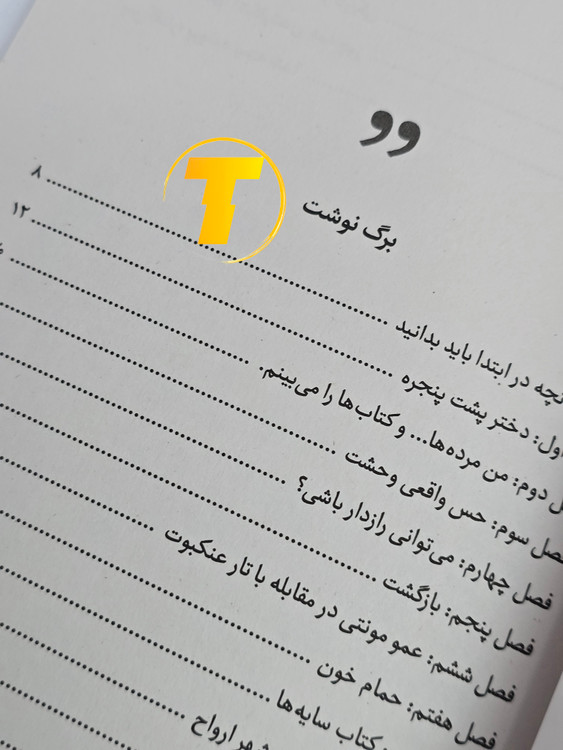 ”
T
برگ نوشت
نچه در ابتدا باید بدانید ........ ۸
اول: دختر پشت پنجره ........ ۱۲
دوم: من مرده‌ها... و کتاب‌ها را می‌بینم. ........
فصل سوم: حس واقعی وحشت ........
فصل چهارم: می‌توانی رازدار باشی؟ ........
فصل پنجم: بازگشت ........
فصل ششم: عمو مونتی در مقابله با تار عنکبوت ........
فصل هفتم: حمام خون ........
کتاب سایه‌ها ........
شهر ارواح ........